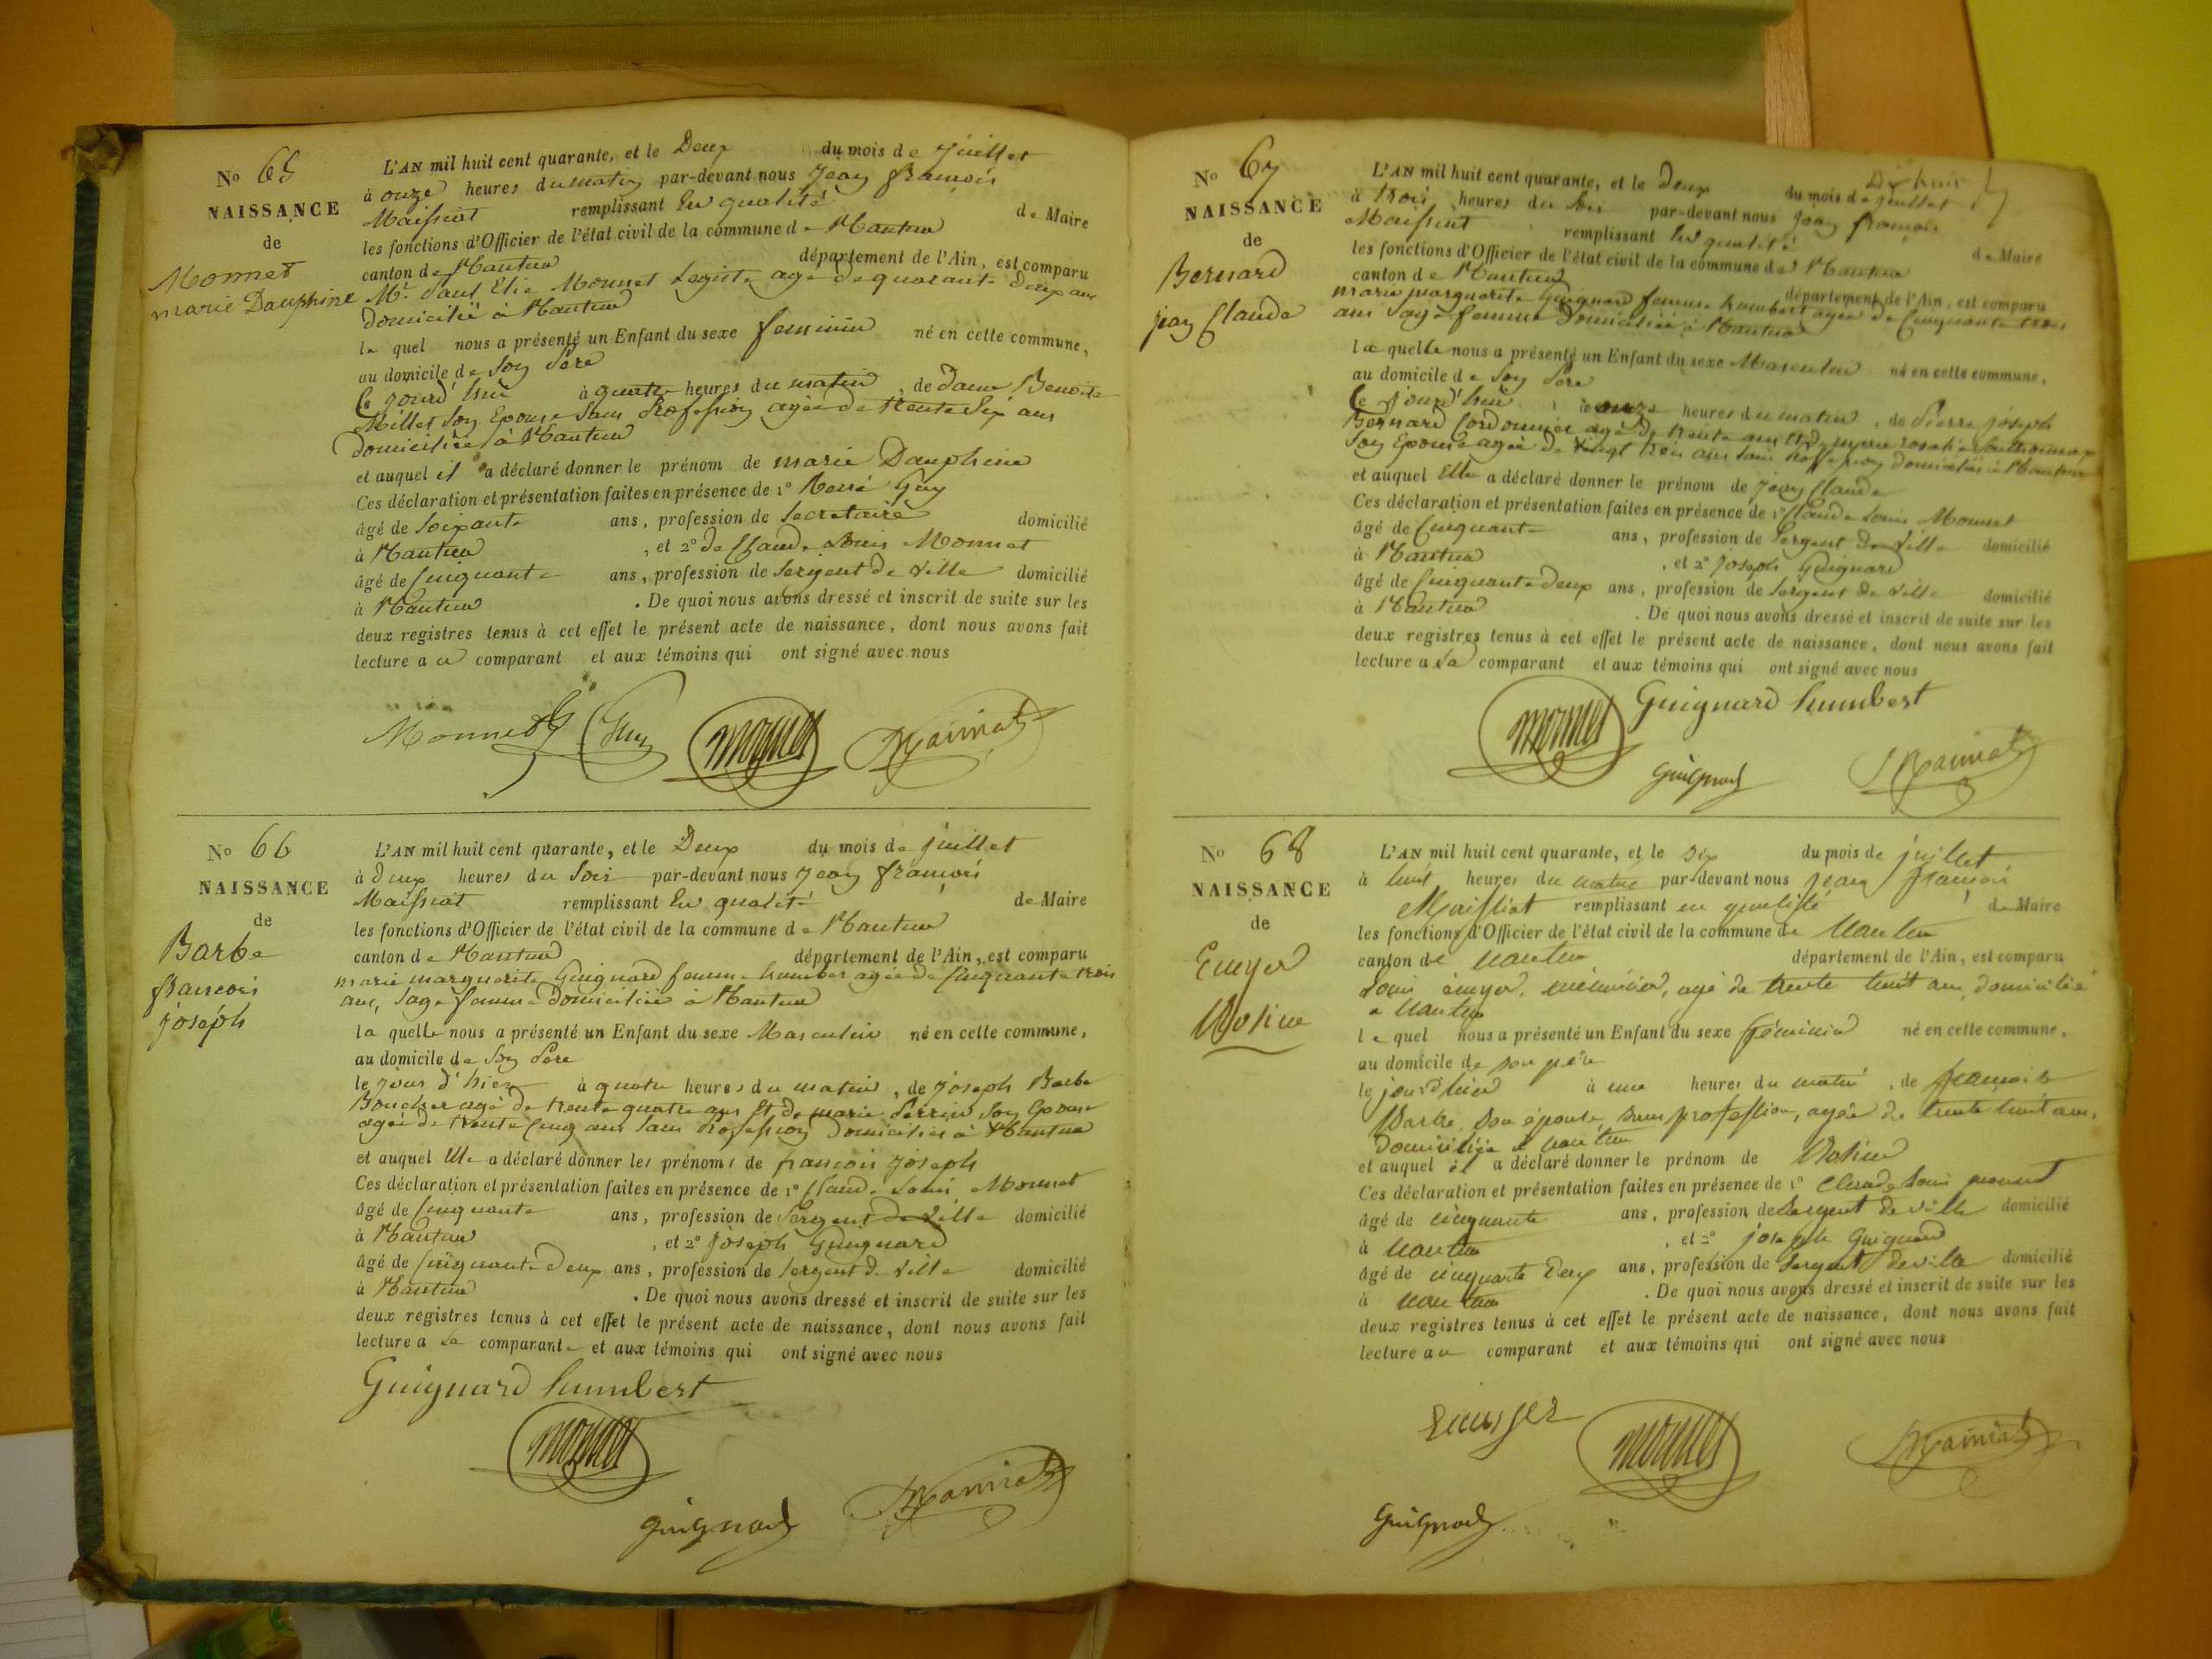 No 65
NAISSANCE
de
Monnet
marie Dauphine
L'AN mil huit cent quarante, et le Deux du mois de juillet
à onze heures du matin par-devant nous jean françois
Maissiat remplissant en qualité de Maire
les fonctions d'Officier de l'état civil de la commune de Nantua
canton de Nantua département de l'Ain, est comparu
Mr. Paul Elie Monnet Legiste agé de quarante Deux ans
Domicilié à Nantua
le quel nous a présenté un Enfant du sexe feminin né en cette commune,
au domicile de son Père
Ce jourd'hui à quatre heures du matin, de dame Benoite
Millet Son Epouse Sans Profession agée de trente Six ans
domiciliée à Nantua
et auquel il a déclaré donner le prénom de marie Dauphine
Ces déclaration et présentation faites en présence de 1° Guy
âgé de Soixante ans, profession de Secretaire domicilié
à Nantua, et 2° de Claude Louis Monnet
âgé de Cinquante ans, profession de Sergent de Ville domicilié
à Nantua. De quoi nous avons dressé et inscrit de suite sur les
deux registres tenus à cet effet le présent acte de naissance, dont nous avons fait
lecture au comparant et aux témoins qui ont signé avec nous
Monnet Guy monnet Maissiat
No 66
NAISSANCE
de
Barbe
francois
joseph
L'AN mil huit cent quarante, et le Deux du mois de juillet
à deux heures du Soir par-devant nous jean françois
Maissiat remplissant en qualité de Maire
les fonctions d'Officier de l'état civil de la commune de Nantua
canton de Nantua département de l'Ain, est comparu
marie marguerite Guignard femme humber agée de Cinquante trois
ans, Sage femme domiciliée à Nantua
la quelle nous a présenté un Enfant du sexe Masculin né en cette commune,
au domicile de Son Père
le jour d'hier à quatre heures du matin, de joseph Barbe
Boucher agé de trente quatre ans Et de marie Perrin Son Epouse
agée de trente Cinq ans Sans Profession Domiciliés à Nantua
et auquel Elle a déclaré donner les prénoms de francois joseph
Ces déclaration et présentation faites en présence de 1° Claude Louis Monnet
âgé de Cinquante ans, profession de Sergent de Ville domicilié
à Nantua, et 2° joseph Guignard
âgé de Cinquante Deux ans, profession de Sergent de Ville domicilié
à Nantua. De quoi nous avons dressé et inscrit de suite sur les
deux registres tenus à cet effet le présent acte de naissance, dont nous avons fait
lecture a La comparante et aux témoins qui ont signé avec nous
Guignard humbert
monnet
guignard Maissiat
No 67
NAISSANCE
de
Bernard
jean Claude
L'AN mil huit cent quarante, et le Deux du mois de juillet
à trois heures du Soir par-devant nous jean françois
Maissiat remplissant en qualité de Maire
les fonctions d'Officier de l'état civil de la commune de Nantua
canton de Nantua département de l'Ain, est comparu
marie marguerite Guignard femme humbert agée de Cinquante trois
ans Sage femme Domiciliée à Nantua
la quelle nous a présenté un Enfant du sexe Masculin né en cette commune,
au domicile de Son Père
Ce jourd'hui à onze heures du matin, de Pierre joseph
Bernard Cordonnier agé de trente ans Et de marie rosalie
Son Epouse agée de Vingt trois ans Sans Profession domiciliés à Nantua
et auquel Elle a déclaré donner le prénom de jean Claude
Ces déclaration et présentation faites en présence de 1° Claude Louis Monnet
âgé de Cinquante ans, profession de Sergent de Ville domicilié
à Nantua, et 2° joseph Guignard
âgé de Cinquante Deux ans, profession de Sergent de Ville domicilié
à Nantua. De quoi nous avons dressé et inscrit de suite sur les
deux registres tenus à cet effet le présent acte de naissance, dont nous avons fait
lecture a La comparant et aux témoins qui ont signé avec nous
monnet Guignard humbert
guignard Maissiat
No 68
NAISSANCE
de
L'AN mil huit cent quarante, et le six du mois de juillet
à huit heures du matin par-devant nous jean françois
Maissiat remplissant en qualité de Maire
les fonctions d'Officier de l'état civil de la commune de Nantua
canton de Nantua département de l'Ain, est comparu
Louis, agé de trente huit ans, domicilié
à Nantua
le quel nous a présenté un Enfant du sexe féminin né en cette commune,
au domicile de son père
le jour d'hier à une heures du matin, de françoise
Barbe, son épouse, sans profession, agée de trente huit ans,
domiciliée à nantua
et auquel il a déclaré donner le prénom de
Ces déclaration et présentation faites en présence de 1° Claude Louis monnet
âgé de cinquante ans, profession de Sergent de ville domicilié
à nantua, et 2° joseph Guignard
âgé de cinquante Deux ans, profession de Sergent de ville domicilié
à nantua. De quoi nous avons dressé et inscrit de suite sur les
deux registres tenus à cet effet le présent acte de naissance, dont nous avons fait
lecture au comparant et aux témoins qui ont signé avec nous
monnet Maissiat
guignard